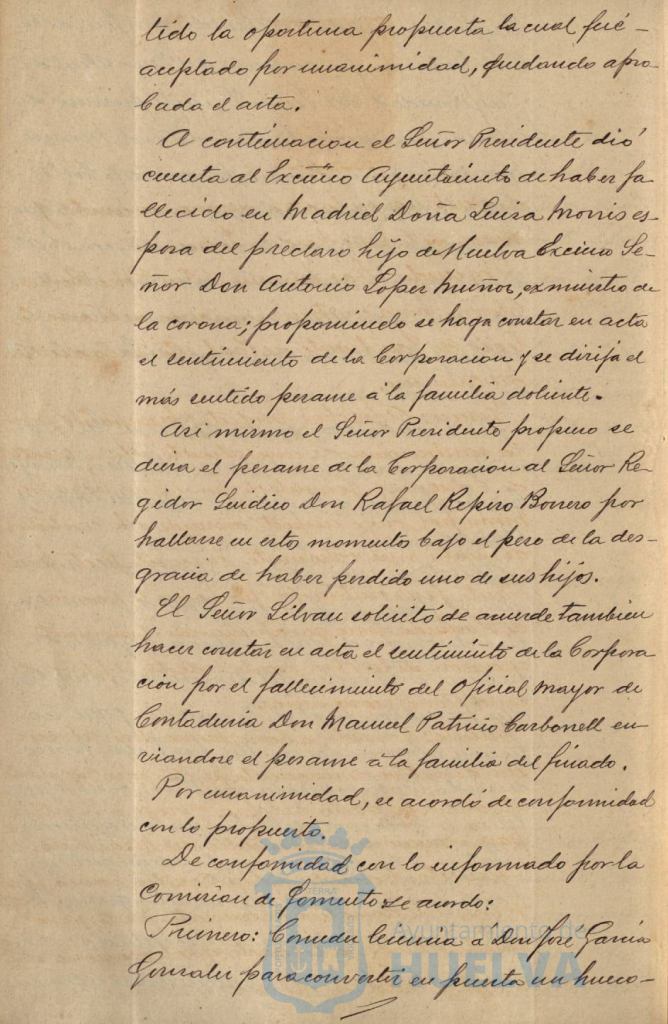 tido la oportuna propuesta la cual fué-
aceptado por unanimidad, quedando apro-
bada el acta.
A continuacion el Señor Presidente dió
cuenta al Excmo Ayuntacinto de haber fa-
llecido en Madrid Doña Luisa Morris es-
posa del preclaro hijo de Huelva Excmo Se-
ñor Don Antonio Lopez Muñoz, exministro de
la corona; proponiendo se haga constar en acta
el sentimiento de la Corporacion y se dirija el
más sentido pesame á la familia doliente.
Asi mismo el Señor Presidente propuso se
diera el pesame de la Corporacion al Señor Re-
gidor Sindico Don Rafael Repiso Borrero por
hallarse en estos momentos bajo el peso de la des-
gracia de haber perdido uno de sus hijos.
El Señor Silvan solicitó se acuerde tambien
hacer constar en acta el sentimiento de la Corpora
cion por el fallecimiento del Oficial mayor de
Contaduria Don Manuel Patricio Carbonell en-
viandose el pesame á la familia del finado.
Por unanimidad, se acordó de conformidad
con lo propuesto.
De conformidad con lo informado por la
Comision de Fomento se acordo:
Primero: Conceder licencia á Don José Garcia
Gonzalez para convertir en puerta un hueco-
Ayuntamiento de
HUELVA